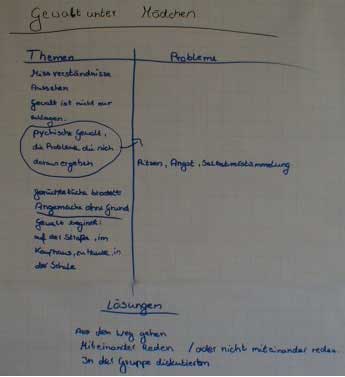 Gewalt unter Mädchen
Themen
Probleme
Missverständnisse
Aussehen
Gewalt ist nicht nur
schlagen.
psychische Gewalt,
die Probleme die sich
daraus ergeben
Ritzen, Angst, Selbstverstümmelung
Angemache ohne Grund
Gewalt beginnt:
auf der Straße, im
Kaufhaus, zu Hause, in
der Schule
Lösungen
Aus dem Weg gehen
Miteinander Reden / oder nicht miteinander reden
In der Gruppe diskutieren